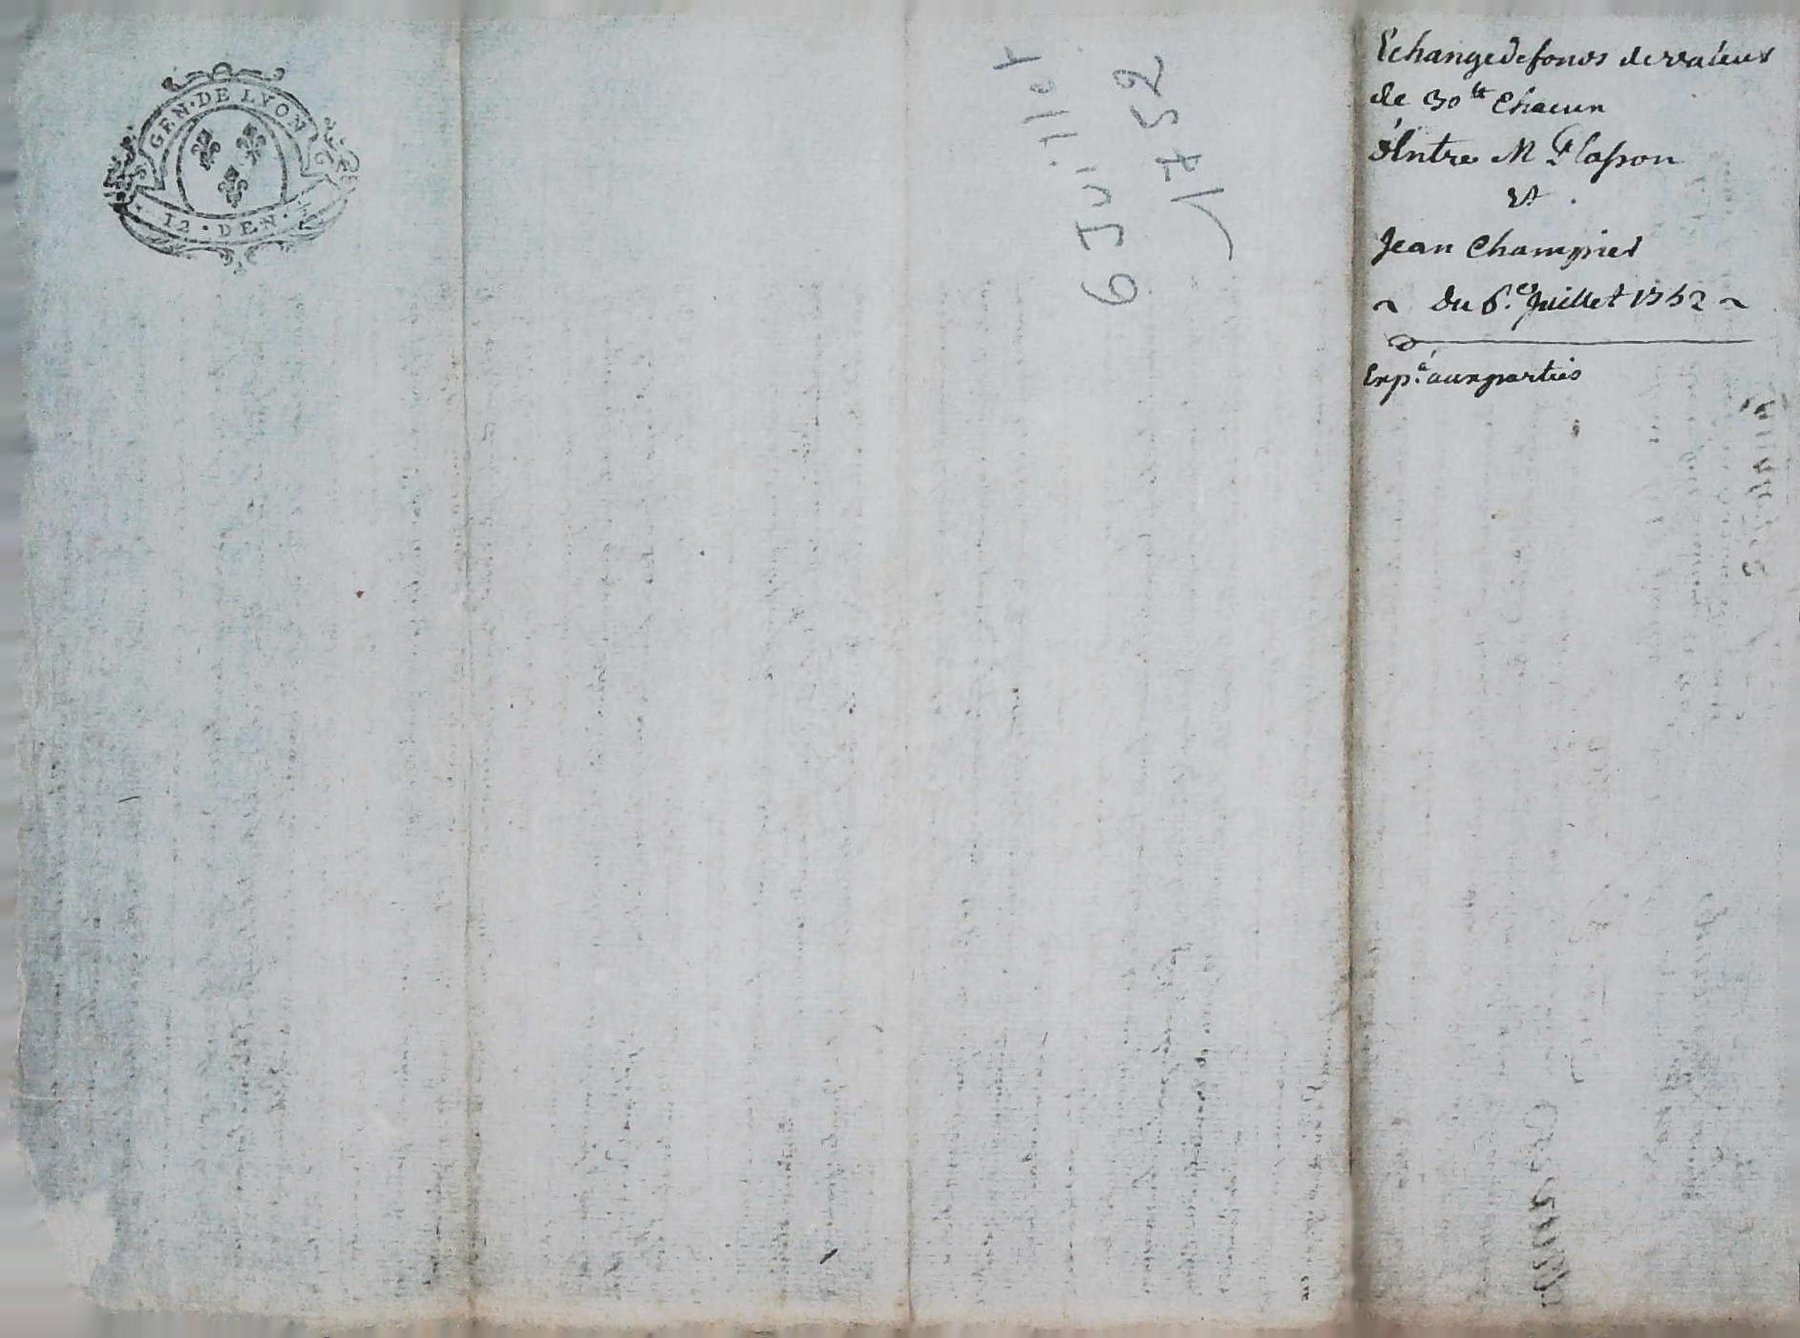 GEN·DE LYON
12·DEN·
6 Juillet
1752
Echange de fonds de valeur
de 30 lt Chacun
Entre M
et
Jean Champier
~ du 6.e Juillet 1752 ~
Exp.é aux parties